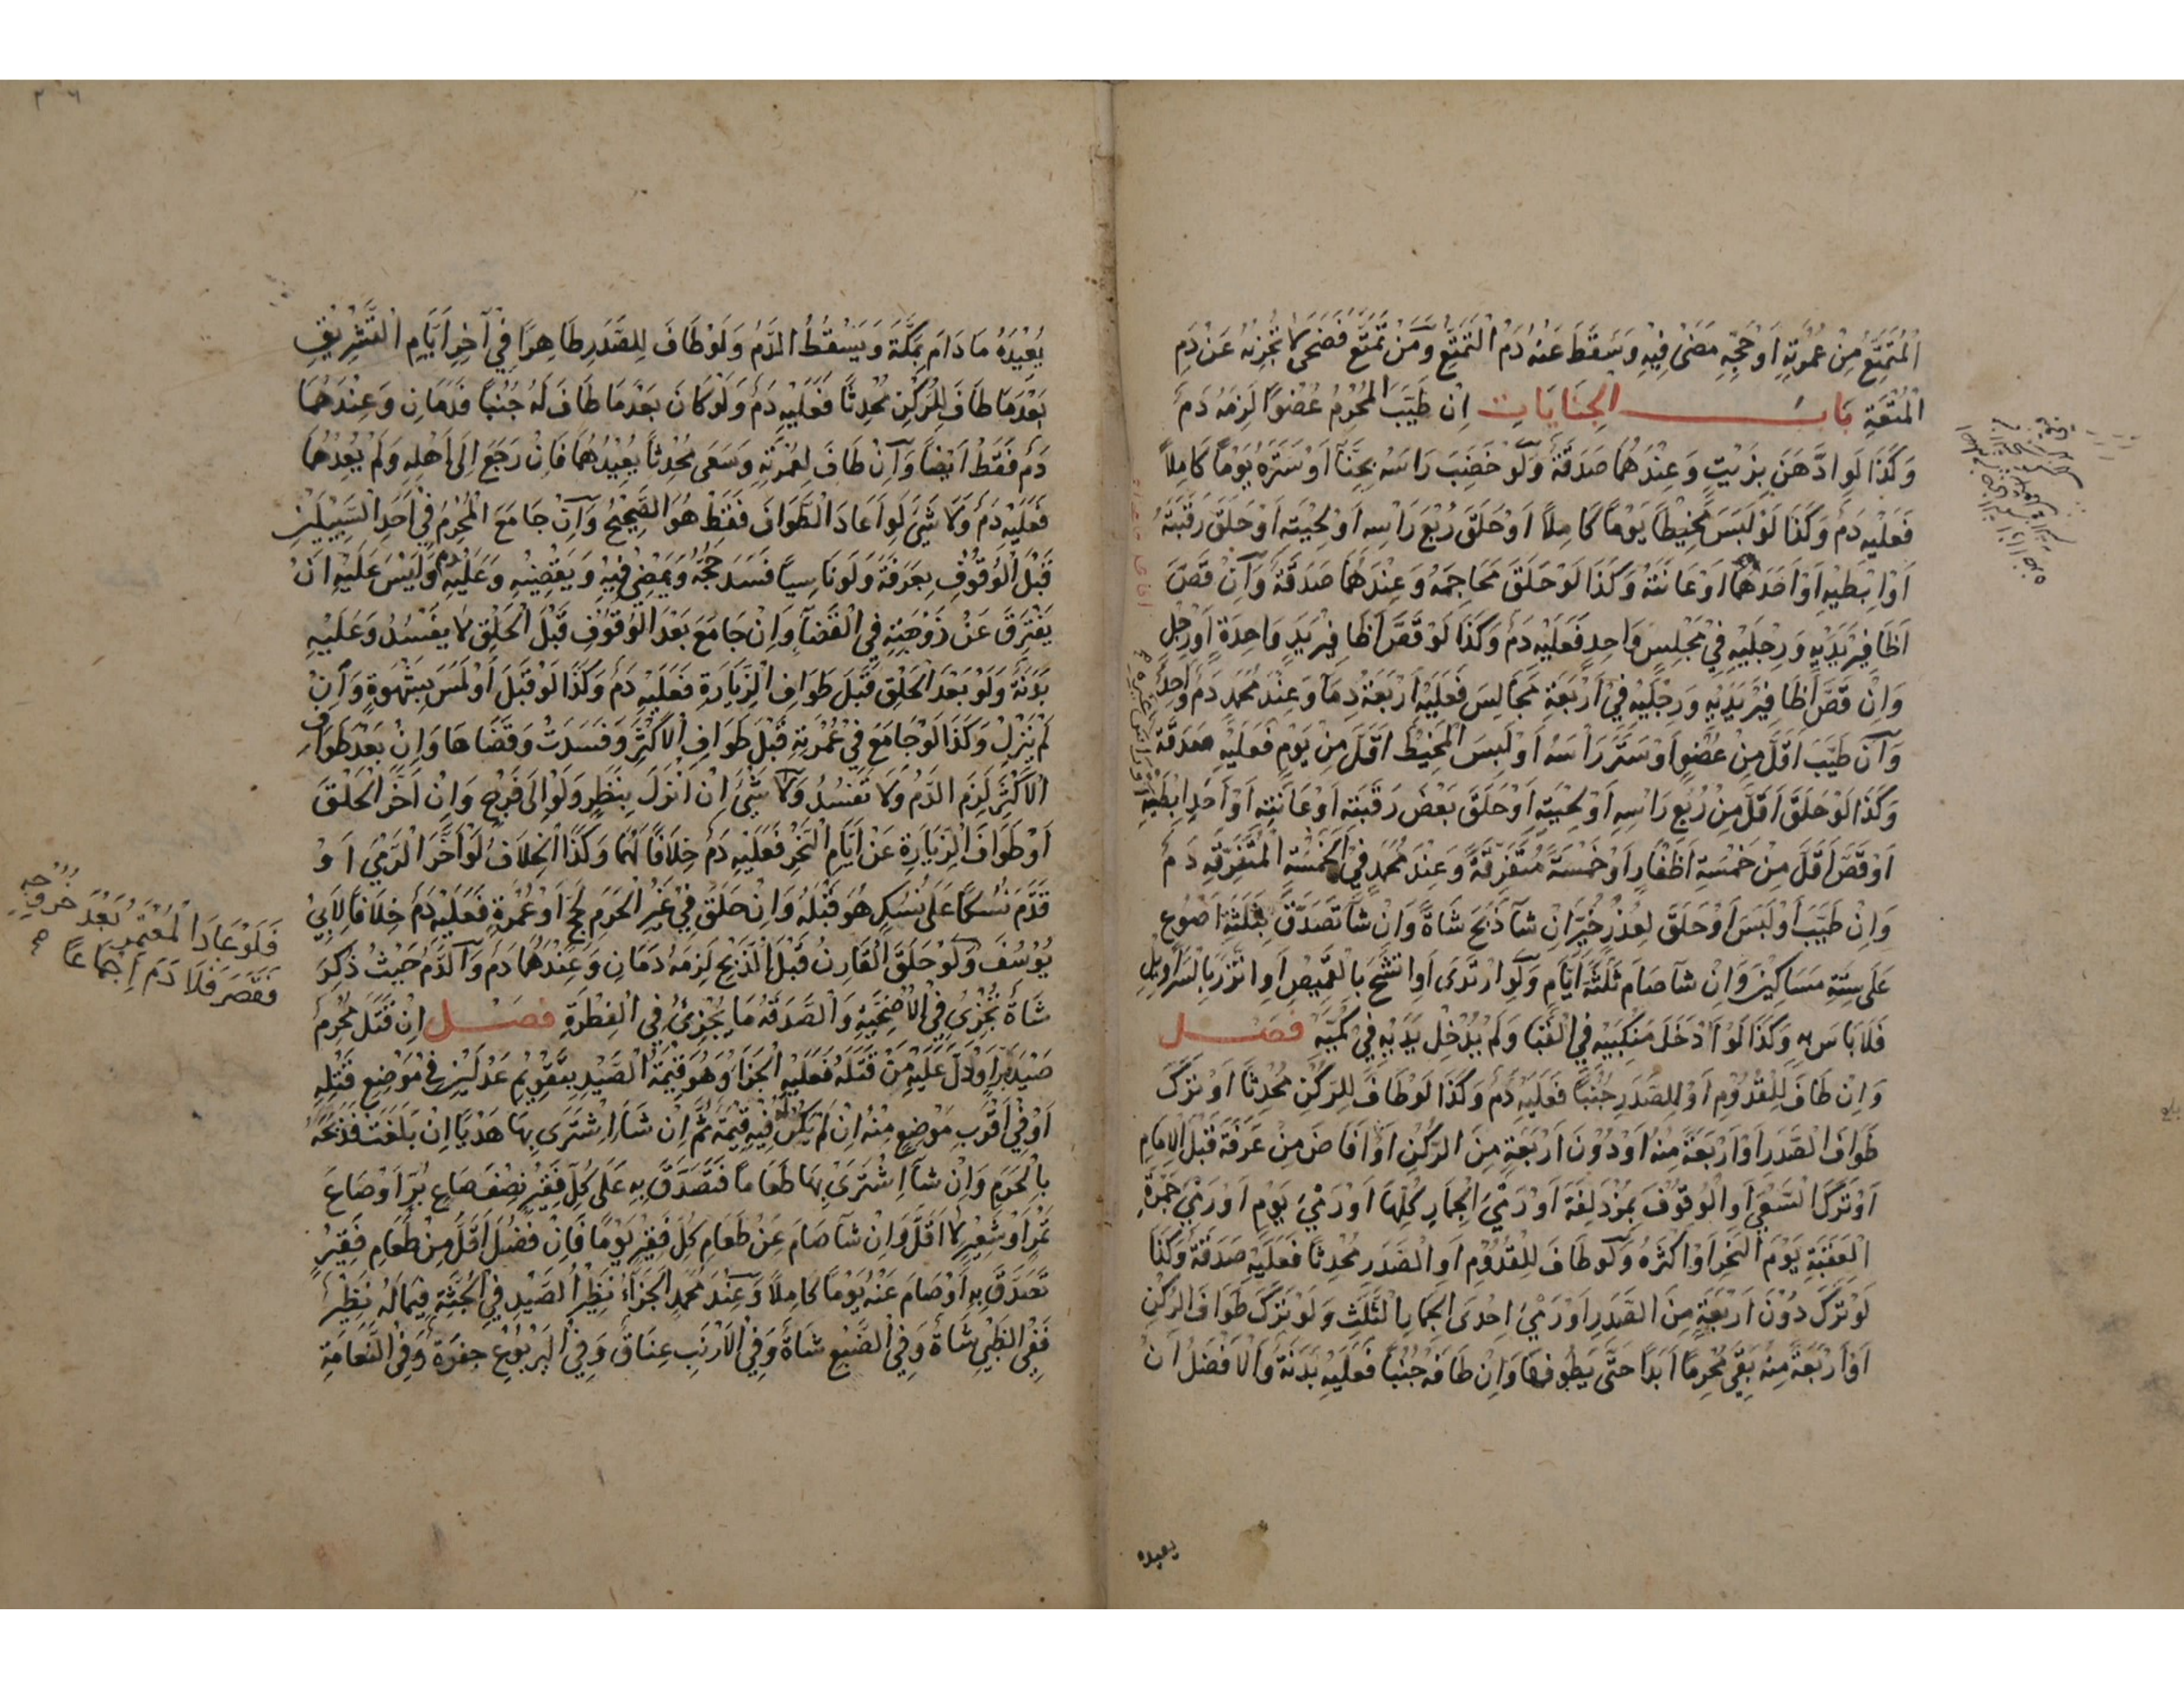 المُتَمَتِّعُ مِنْ عُمْرَتِهِ اَوْ حَجِّهِ مَضَىْ فِيْهِ وَسَقَطَ عَنْهُ دَمُ الْتَمَتُّعِ وَمَنْ تَمَتَّعَ فَضَحَّى لَا تُجْزِئُهُ عَنْ دَمِ
الْمُتْعَةِ بَابُ الْجِنَايَاتِ اِنْ طَيَّبَ الْمُحْرِمُ عُضْوًا لَزِمَهُ دَمٌ
وَكَذَا لَوِ ادَّهَنَ بِزَيْتٍ وَعِنْدَهُمَا صَدَقَةٌ وَلَوْ خَضَبَ رَاسَهُ بِحِنَّآ اَوْ سَتَرَهُ يَوْمًا كَامِلاً
فَعَلَيْهِ دَمٌ وَكَذَا لَوْ لَبِسَ مَخِيْطًا يَوْمًا كَامِلاً اَوْ حَلَقَ رُبْعَ رَاْسِهِ اَوْ لِحْيَتِهِ اَوْ حَلَقَ رَقَبَتَهُ
اَوْ اِبِطَيْهِ اَوْ اَحَدَهُمَا اَوْ عَانَتَهُ وَكَذَا لَوْ حَلَقَ مَحَاجِمَهُ وَعِنْدَهُمَا صَدَقَةٌ وَاِنْ قَصَّ
اَظَافِيْرَ يَدَيْهِ وَرِجْلَيْهِ فِيْ مَجْلِسٍ وَاحِدٍ فَعَلَيْهِ دَمٌ وَكَذَا لَوْ قَصَّ اَظَافِيْرَ يَدٍ وَاحِدَةٍ اَوْ رِجْلٍ
وَاِنْ قَصَّ اَظَافِيْرَ يَدَيْهِ وَرِجْلَيْهِ فِيْ اَرْبَعَةِ مَجَالِسَ فَعَلَيْهِ اَرْبَعَةُ دِمَآ وَعِنْدَ مُحَمَّدٍ دَمٌ وَاحِدٌ
وَاِنْ طَيَّبَ اَقَلَّ مِنْ عُضْوٍ اَوْ سَتَرَ رَاْسَهُ اَوْ لَبِسَ الْمَخِيْطَ اَقَلَّ مِنْ يَوْمٍ فَعَلَيْهِ صَدَقَةٌ
وَكَذَا لَوْ حَلَقَ اَقَلَّ مِنْ رُبْعِ رَاسِهِ اَوْ لِحْيَتِهِ اَوْ حَلَقَ بَعْضَ رَقَبَتِهِ اَوْ عَانَتِهِ اَوْ اَحَدِ اِبِطَيْهِ
اَوْ قَصَّ اَقَلَّ مِنْ خَمْسَةِ اَظْفَارٍ اَوْ خَمْسَةً مُتَفَرِّقَةً وَعِنْدَ مُحَمَّدٍ فِيْ الْخَمْسَةِ الْمُتَفَرِّقَةِ دَمٌ
وَاِنْ طَيَّبَ اَوْ لَبِسَ اَوْ حَلَقَ لِعُذْرٍ خُيِّرَ اِنْ شَآ ذَبَحَ شَاةً وَاِنْ شَا تَصَدَّقَ بِثَلٰثَةِ اَصْوُعٍ
عَلَى سِتَّةِ مَسَاكِيْنَ وَاِنْ شَآ صَامَ ثَلٰثَةَ اَيَّامٍ وَلَوِ ارْتَدَى اَوِ اتَّشَحَ بِالْقَمِيْصِ اَوِ اتَّزَرَ بِالسَّرَاوِيْلِ
فَلَا بَاسَ بِهِ وَكَذَا لَوْ اَدْخَلَ مَنْكِبَيْهِ فِي الْقَبَا وَلَمْ يُدْخِلْ يَدَيْهِ فِيْ كُمَّيْهِ فَصْل
وَاِنْ طَافَ لِلْقُدُوْمِ اَوْ لِلصَّدَرِ جُنُبًا فَعَلَيْهِ دَمٌ وَكَذَا لَوْ طَافَ لِلرُّكْنِ مُحْدِثًا اَوْ تَرَكَ
طَوَافَ الْصَّدَرِ اَوْ اَرْبَعَةً مِنْهُ اَوْ دُوْنَ اَرْبَعَةٍ مِنَ الرُّكْنِ اَوْ اَفَاضَ مِنْ عَرَفَةَ قَبْلَ الْاِمَامِ
اَوْ تَرَكَ الْسَّعْيَ اَوِ الْوُقُوْفَ بِمُزْدَلِفَةَ اَوْ رَمْيَ الْجِمَارِ كُلِّهَا اَوْ رَمْيَ يَوْمٍ اَوْ رَمْيَ جَمْرَةِ
الْعَقَبَةِ يَوْمَ الْنَحْرِ اَوْ اَكْثَرَهُ وَلَوْ طَافَ لِلْقُدُوْمِ اَوِ الْصَّدَرِ مُحْدِثًا فَعَلَيْهِ صَدَقَةٌ وَكَذَا
لَوْ تَرَكَ دُوْنَ اَرْبَعَةٍ مِنَ الصَّدَرِ اَوْ رَمْيَ اِحْدَى الْجِمَارِ الْثَلٰثِ وَلَوْ تَرَكَ طَوَافَ الرُّكْنِ
اَوْ اَرْبَعَةً مِنْهُ بَقِيَ مُحْرِمًا اَبَدًا حَتَّى يَطُوْفَهَا وَاِنْ طَافَهُ جُنُبًا فَعَلَيْهِ بَدَنَةٌ وَالْاَفْضَلُ اَنْ
يعيده
يُعِيْدَهُ مَا دَامَ بِمَكَّةَ وَيَسْقُطُ الدَّمُ وَلَوْ طَافَ لِلصَّدَرِ طَاهِرًا فِيْ آخِرِ اَيَّامِ الْتَّشْرِيْقِ
بَعْدَمَا طَافَ لِلرُّكْنِ مُحْدِثًا فَعَلَيْهِ دَمٌ وَلَوْ كَانَ بَعْدَمَا طَافَ لَهُ جُنُبًا فَدَمَانِ وَعِنْدَهُمَا
دَمٌ فَقَطْ اَيْضًا وَاِنْ طَافَ لِعُمْرَتِهِ وَسَعَى مُحْدِثًا يُعِيْدُهُمَا فَاِنْ رَجَعَ اِلَى اَهْلِهِ وَلَمْ يُعِدْهُمَا
فَعَلَيْهِ دَمٌ وَلَا شَيْءَ لَوْ اَعَادَ الْطَّوَافَ فَقَطْ هُوَ الْصَّحِيْحُ وَاِنْ جَامَعَ الْمُحْرِمُ فِيْ اَحَدِ الْسَّبِيْلَيْنِ
قَبْلَ الْوُقُوْفِ بِعَرَفَةَ وَلَوْ نَاسِيًا فَسَدَ حَجُّهُ وَيَمْضِيْ فِيْهِ وَيَقْضِيْهِ وَعَلَيْهِ دَمٌ وَلَيْسَ عَلَيْهِ اَنْ
يَفْتَرِقَ عَنْ زَوْجَتِهِ فِي الْقَضَآ وَاِنْ جَامَعَ بَعْدَ الْوُقُوْفِ قَبْلَ الْحَلْقِ لَا يَفْسُدُ وَعَلَيْهِ
بَدَنَةٌ وَلَوْ بَعْدَ الْحَلْقِ قَبْلَ طَوَافِ الْزِّيَارَةِ فَعَلَيْهِ دَمٌ وَكَذَا لَوْ قَبَّلَ اَوْ لَمَسَ بِشَهْوَةٍ وَاِنْ
لَمْ يُنْزِلْ وَكَذَا لَوْ جَامَعَ فِيْ عُمْرَتِهِ قَبْلَ طَوَافِ الْاَكْثَرِ وَفَسَدَتْ وَقَضَاهَا وَاِنْ بَعْدَ طَوَافِ
الْاَكْثَرِ لَزِمَ الدَّمُ وَلَا تَفْسُدُ وَلَا شَيْءَ اِنْ اَنْزَلَ بِنَظَرٍ وَلَوْ اِلَى فَرْجٍ وَاِنْ اَخَّرَ الْحَلْقَ
اَوْ طَوَافَ الْزِّيَارَةِ عَنْ اَيَّامِ الْنَحْرِ فَعَلَيْهِ دَمٌ خِلَافًا لَهُمَا وَكَذَا الْخِلَافُ لَوْ اَخَّرَ الْرَّمْيَ اَوْ
قَدَّمَ نُسُكًا عَلَى نُسُكٍ هُوَ قَبْلَهُ وَاِنْ حَلَقَ فِيْ غَيْرِ الْحَرَمِ لِحَجٍّ اَوْ عُمْرَةٍ فَعَلَيْهِ دَمٌ خِلَافًا لِاَبِيْ
يُوْسُفَ وَلَوْ حَلَقَ الْقَارِنُ قَبْلَ الْذَّبْحِ لَزِمَهُ دَمَانِ وَعِنْدَهُمَا دَمٌ وَالدَّمُ حَيْثُ ذُكِرَ
شَاةٌ تُجْزِئُ فِيْ الْاُضْحِيَّةِ وَالْصَّدَقَةُ مَا يُجْزِئُ فِي الْفِطْرَةِ فَصْل اِنْ قَتَلَ مُحْرِمٌ
صَيْدَ بَرٍّ اَوْ دَلَّ عَلَيْهِ مَنْ قَتَلَهُ فَعَلَيْهِ الْجَزَآ وَهُوَ قِيْمَةُ الْصَّيْدِ بِتَقْوِيْمِ عَدْلَيْنِ فِيْ مَوْضِعِ قَتْلِهِ
اَوْ فِيْ اَقْرَبِ مَوْضِعٍ مِنْهُ اِنْ لَمْ يَكُنْ لَهُ فِيْهِ قِيْمَةٌ ثُمَّ اِنْ شَا اشْتَرَى بِهَا هَدْيًا اِنْ بَلَغَتْ فَذَبَحَهُ
بِالْحَرَمِ وَاِنْ شَآ اِشْتَرَى بِهَا طَعَامًا فَتَصَدَّقَ بِهِ عَلَى كُلِّ فَقِيْرٍ نِصْفَ صَاعِ بُرٍّ اَوْ صَاعَ
تَمْرٍ اَوْ شَعِيْرٍ لَا اَقَلَّ وَاِنْ شَآ صَامَ عَنْ طَعَامِ كُلِّ فَقِيْرٍ يَوْمًا فَاِنْ فَضُلَ اَقَلُّ مِنْ طَعَامِ فَقِيْرٍ
تَصَدَّقَ بِهِ اَوْ صَامَ عَنْهُ يَوْمًا كَامِلاً وَعِنْدَ مُحَمَّدٍ الْجَزَآءُ نَظِيْرُ الصَّيْدِ فِي الْجُثَّةِ فِيْمَا لَهُ نَظِيْرٌ
فَفِي الظَّبْيِ شَاةٌ وَفِي الضَّبُعِ شَاةٌ وَفِيْ الْاَرْنَبِ عِنَاقٌ وَفِيْ الْيَرْبُوْعِ جَفْرَةٌ وَفِي الْنَّعَامَةِ
فَلَوْ عَادَ الْمُعْتَمِرُ بَعْدَ خُرُوْجِهِ
فَقَصَّرَ فَلَا دَمَ اِجْمَاعًا